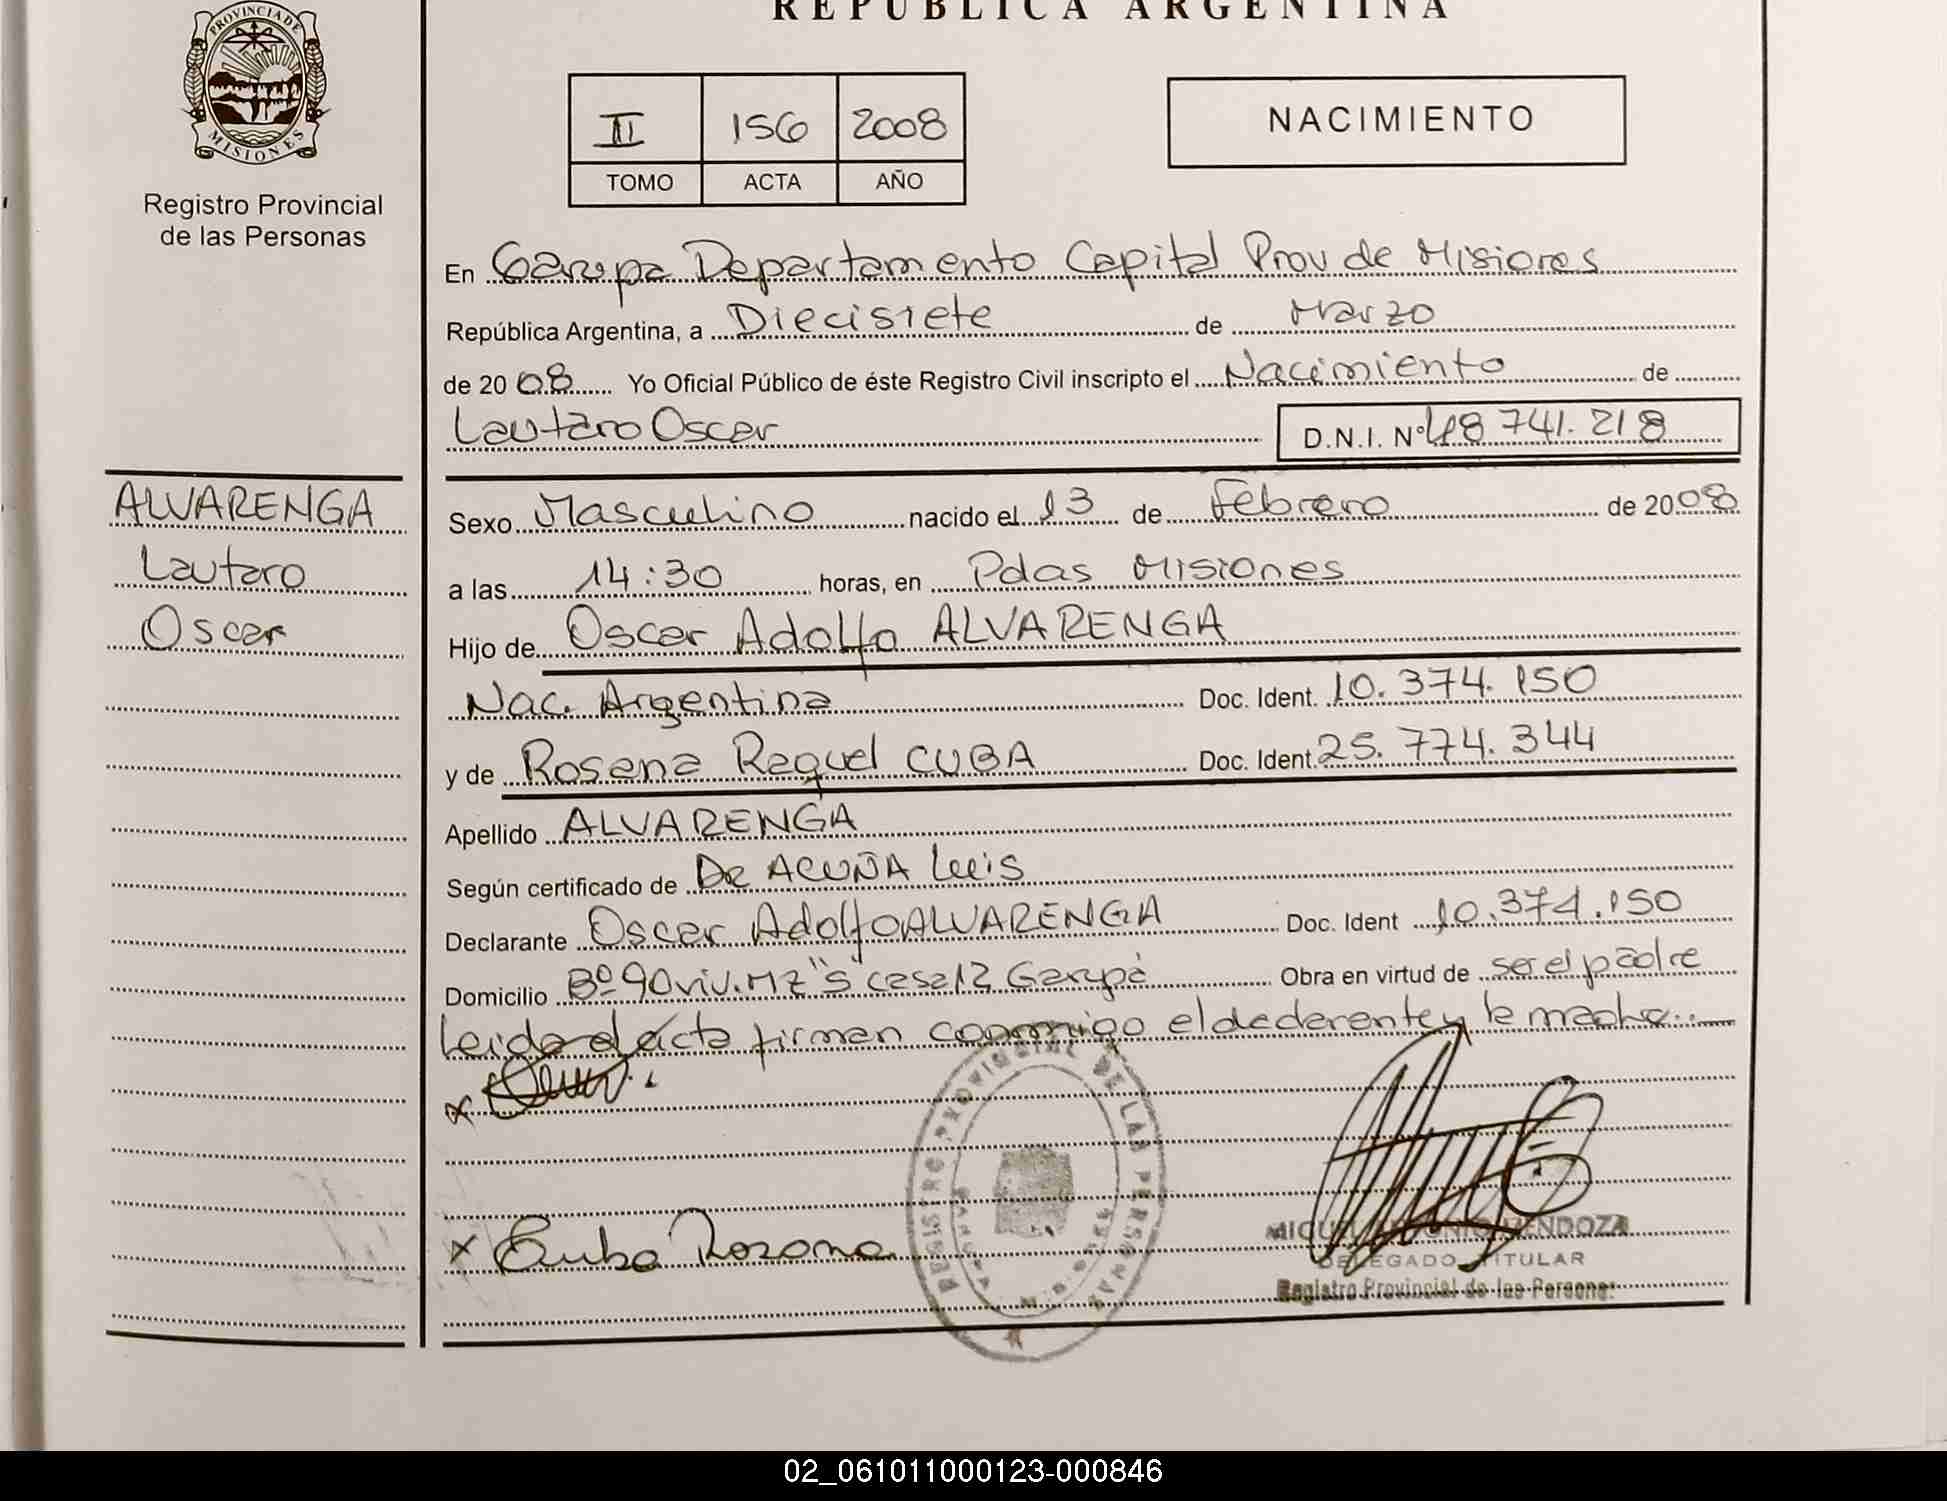 REPUBLICA ARGENTINA
PROVINCIA DE
MISIONES
Registro Provincial
de las Personas
II 156 2008
TOMO ACTA AÑO
NACIMIENTO
En Garupa Departamento Capital Prov de Misiones
República Argentina, a Diecisiete de Marzo
de 2008 Yo Oficial Público de éste Registro Civil inscripto el Nacimiento de
Lautaro Oscar D.N.I. Nº 48 741.218
ALVARENGA
Lautaro
Oscar
Sexo Masculino nacido el 13 de Febrero de 2008
a las 14:30 horas, en Pdas Misiones
Hijo de Oscar Adolfo ALVARENGA
Nac. Argentina Doc. Ident. 10.374.150
y de Rosana Raquel CUBA Doc. Ident. 25.774.344
Apellido ALVARENGA
Según certificado de DR ACUÑA Luis
Declarante Oscar Adolfo ALVARENGA Doc. Ident 10.374.150
Domicilio Bº 90 viv. MZ "S" casa 12 Garupá Obra en virtud de ser el padre
Leida el acta firman conmigo el declarante y la madre..
x
x Cuba Rosana
REGISTRO PROVINCIAL DE LAS PERSONAS
MIGUEL ANTONIO MENDOZA
DELEGADO TITULAR
Registro Provincial de las Personas
02_061011000123-000846